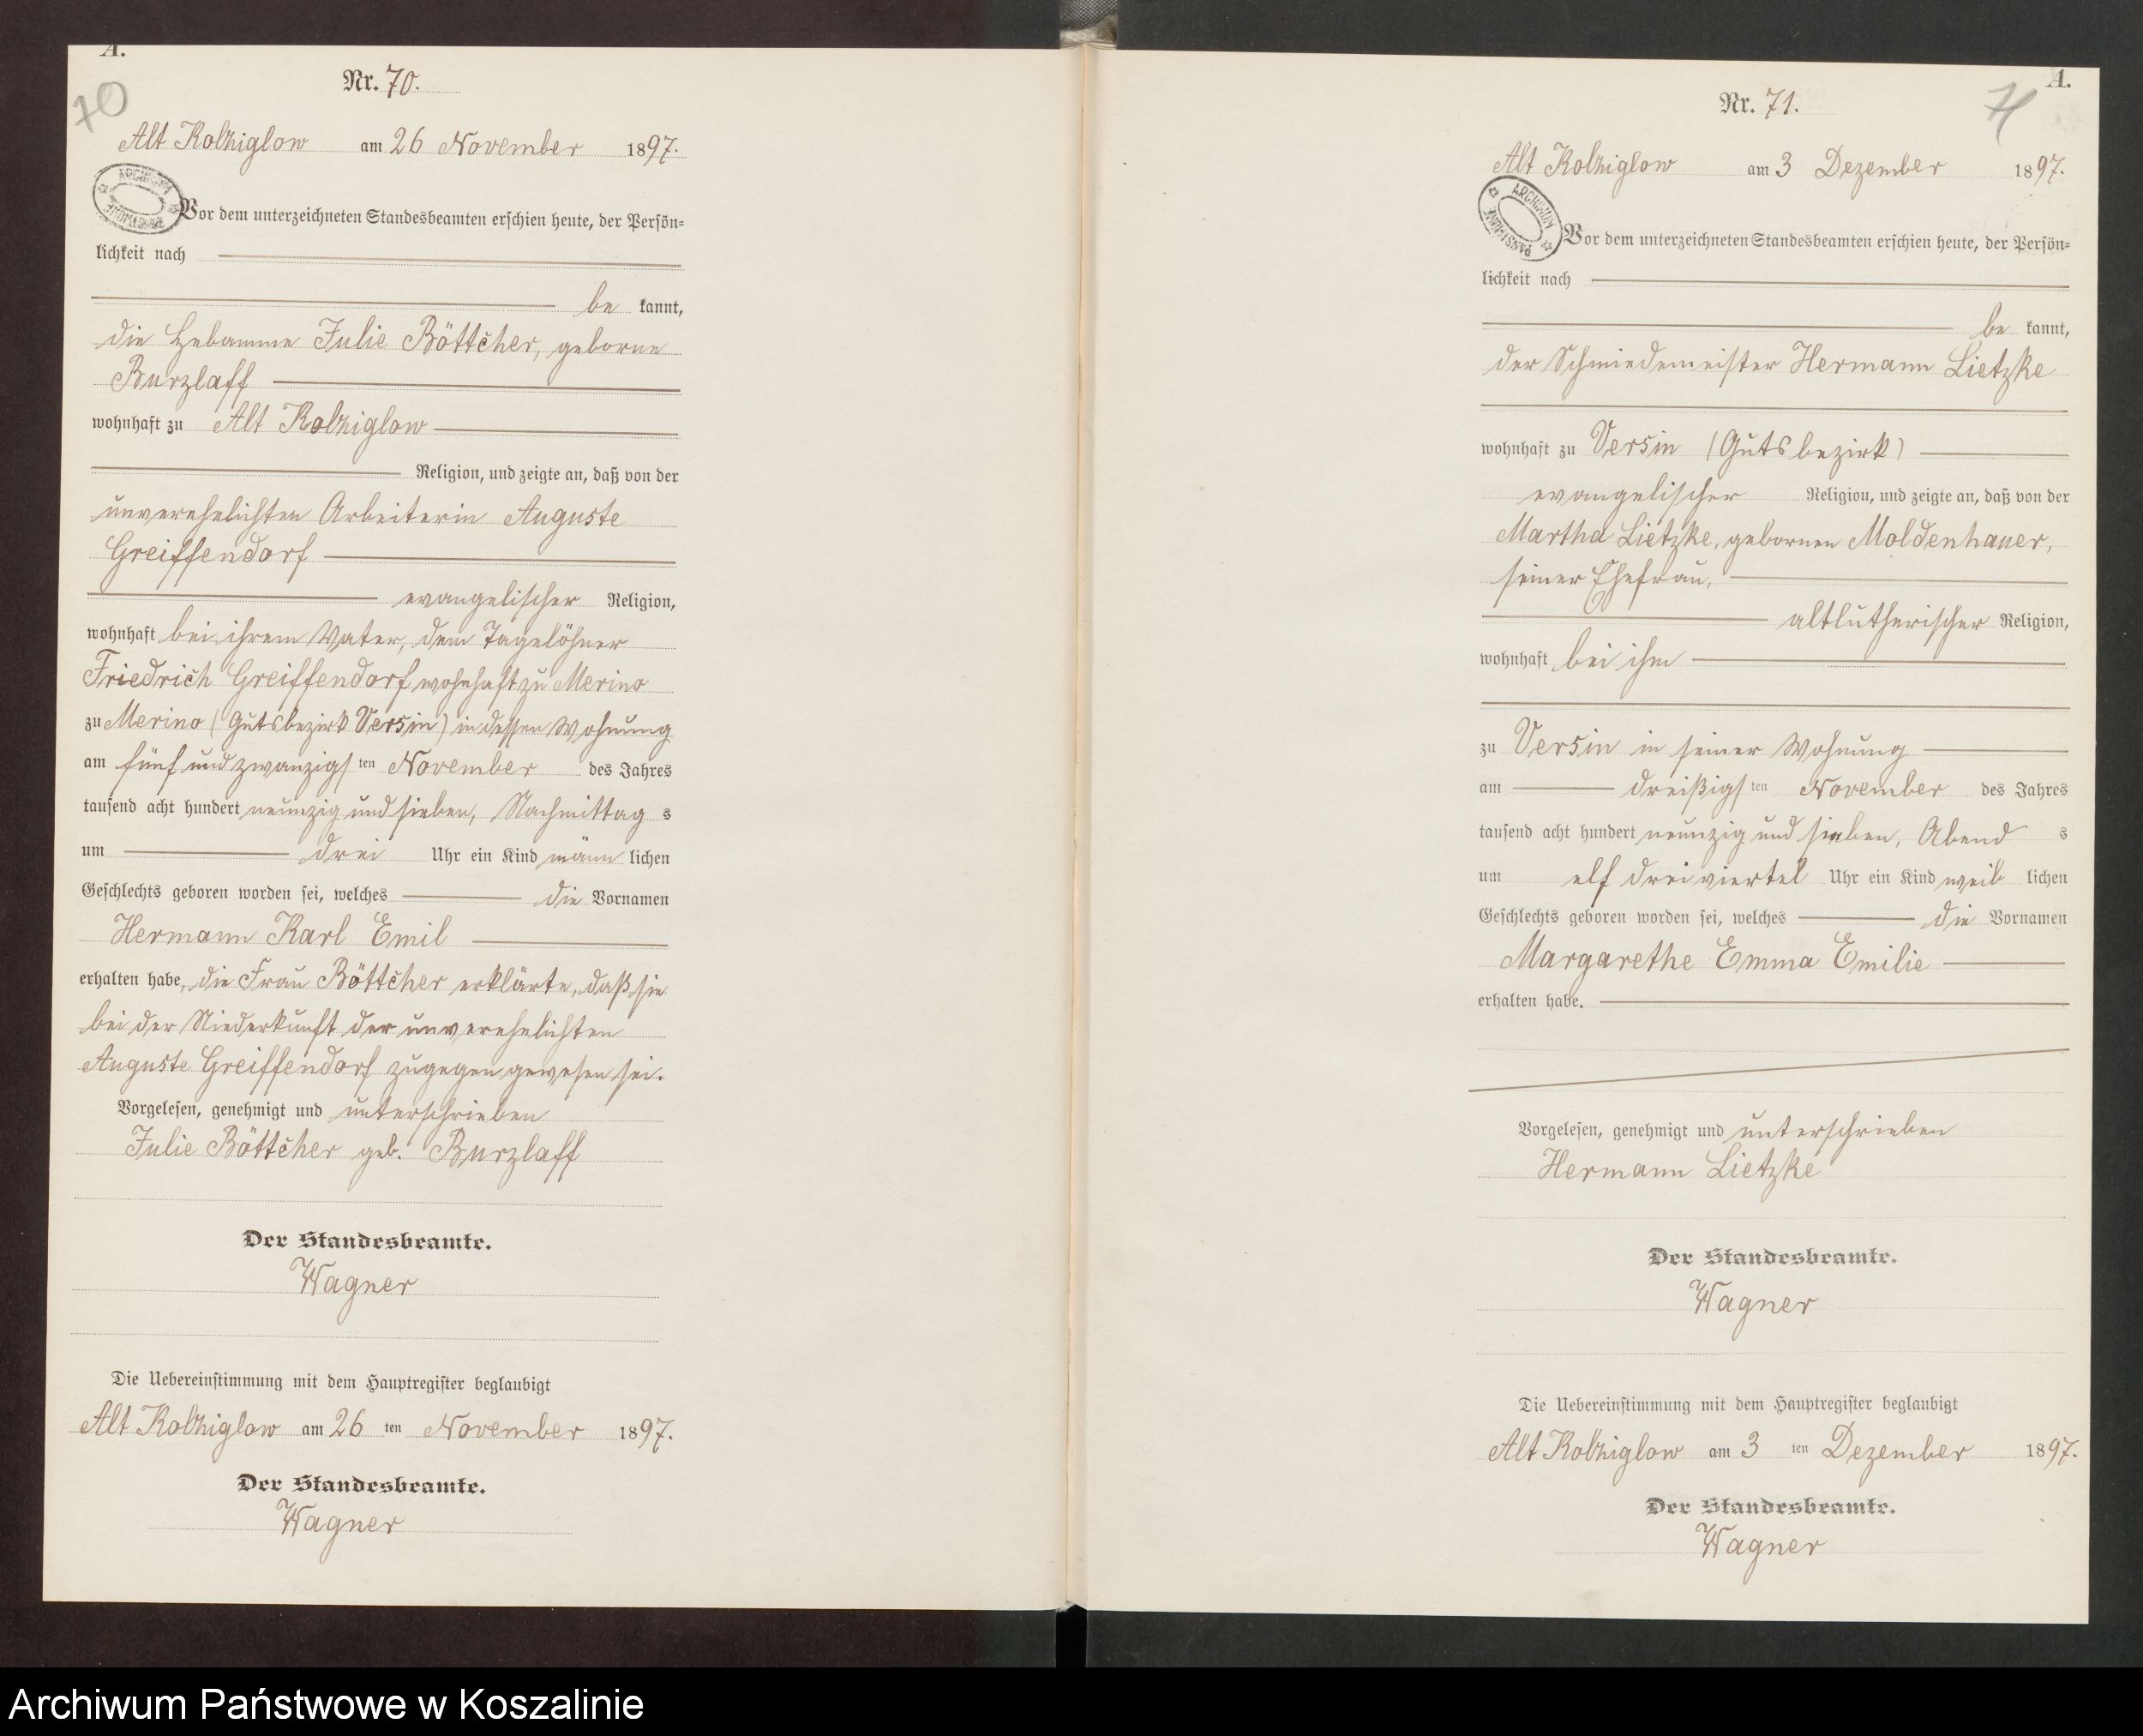 A.
70
Nr. 70.
Alt Kolziglow am 26 November 1897.
Vor dem unterzeichneten Standesbeamten erschien heute, der Persön-
lichkeit nach
be kannt,
die Hebamme Julie Böttcher, geborne
Burzlaff
wohnhaft zu Alt Kolziglow
Religion, und zeigte an, daß von der
unverehelichten Arbeiterin Auguste
Greiffendorf
evangelischer Religion,
wohnhaft bei ihrem Vater, dem Tagelöhner
Friedrich Greiffendorf wohnhaft zu Merino
zu Merino (Gutsbezirk Versin) in dessen Wohnung
am fünf und zwanzigsten November des Jahres
tausend acht hundert neunzig und sieben, Nachmittag s
um drei Uhr ein Kind männ lichen
Geschlechts geboren worden sei, welches die Vornamen
Hermann Karl Emil
erhalten habe, die Frau Böttcher erklärte, daß sie
bei der Niederkunft der unverehelichten
Auguste Greiffendorf zugegen gewesen sei.
Vorgelesen, genehmigt und unterschrieben
Julie Böttcher geb. Burzlaff
Der Standesbeamte.
Wagner
Die Uebereinstimmung mit dem Hauptregister beglaubigt
Alt Kolziglow am 26 ten November 1897.
Der Standesbeamte.
Wagner
A.
71
Nr. 71.
Alt Kolziglow am 3 Dezember 1897.
ARCHIWUM
PAŃSTWOWE
Vor dem unterzeichneten Standesbeamten erschien heute, der Persön-
lichkeit nach
be kannt,
der Schmiedemeister Hermann Lietzke
wohnhaft zu Versin (Gutsbezirk)
evangelischer Religion, und zeigte an, daß von der
Martha Lietzke, gebornen Moldenhauer,
seiner Ehefrau,
altlutherischer Religion,
wohnhaft bei ihm
zu Versin in seiner Wohnung
am dreißigsten November des Jahres
tausend acht hundert neunzig und sieben, Abend s
um elf dreiviertel Uhr ein Kind weib lichen
Geschlechts geboren worden sei, welches die Vornamen
Margarethe Emma Emilie
erhalten habe.
Vorgelesen, genehmigt und unterschrieben
Hermann Lietzke
Der Standesbeamte.
Wagner
Die Uebereinstimmung mit dem Hauptregister beglaubigt
Alt Kolziglow am 3 ten Dezember 1897.
Der Standesbeamte.
Wagner
Archiwum Państwowe w Koszalinie